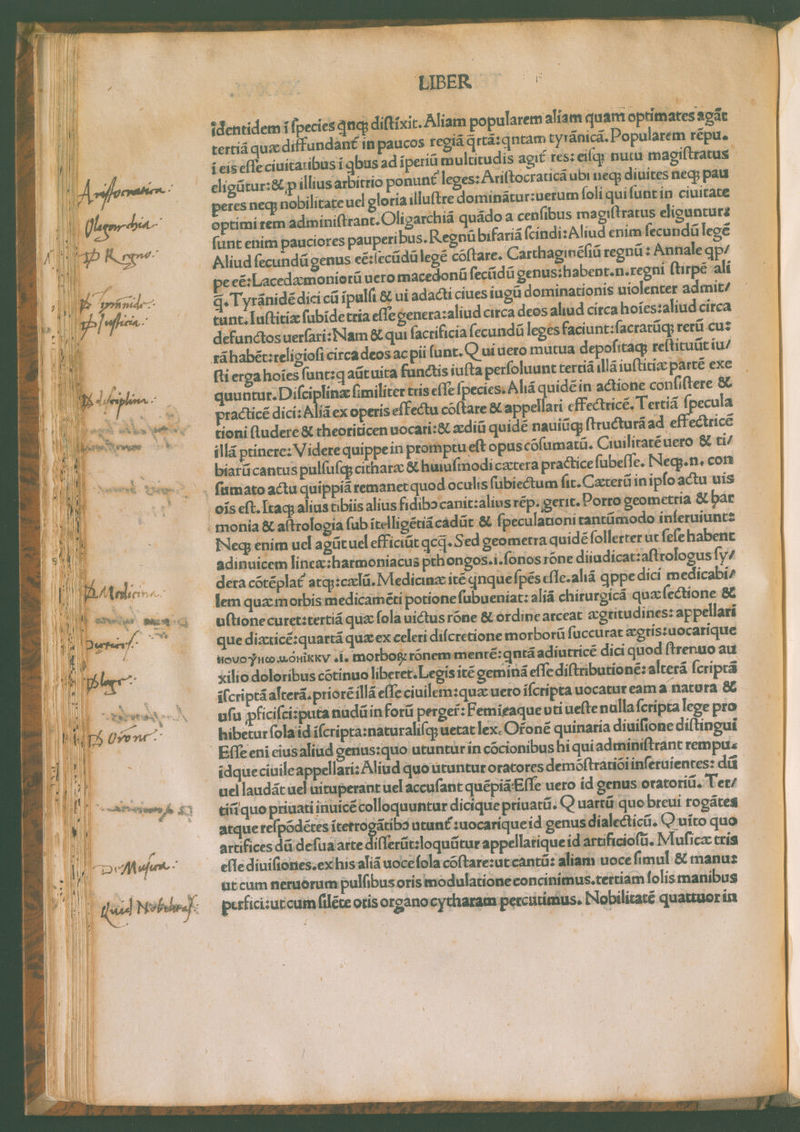 LIBER
identidem ī ſpecies qnq; diſtīxit. Aliam popularem aliam quam optimates agāt
tertiā quæ diffundant̄ in paucos regiā q̄rtā: qntam tyrānicā. Popularem rēpu.
ī eis eſſe ciuitatibus ī qbus ad īperiū multitudis agit̄ res: eiſq; nutu magiſtratus
eligūtur: & p illius arbitrio ponunt̄ leges: Ariſtocraticā ubi neq; diuites neq; pau
peres neq; nobilitate uel gloria illuſtre dominātur: uerum ſoli qui ſunt in ciuitate
optimi rem adminiſtrant. Oligarchiā quādo a cenſibus magiſtratus eliguntur:
ſunt enim pauciores pauperibus. Regnū bifariā ſcindi: Aliud enim ſecundū legē
Aliud ſecundū genus eē: ſecūdū legē cōſtare. Carthaginēſiū regnū: Annale qp/
pe eē: Lacedæmoniorū uero macedonū ſecūdū genus: habent. n. regni ſtirpē ali
q̄. Tyrānidē dici cū īpulſi & ui adacti ciues iugū dominationis uiolenter admit/
tunt. Iuſtitiæ ſubide tria eſſe genera: aliud circa deos aliud circa hoīes: aliud circa
defunctos uerſari: Nam & qui ſacrificia ſecundū leges faciunt: ſacrarūq; rerū cu:
rā habēt: religioſi circa deos ac pii ſunt. Q ui uero mutua depoſitaq; reſtituūt iu/
ſti erga hoīes ſunt: q aūt uita functis iuſta perſoluunt tertiā illā iuſtitiæ partē exe
quuntur. Diſciplinæ ſimiliter tris eſſe ſpecies. Aliā quidē in actione conſiſtere &
practicē dici: Aliā ex operis effectu cōſtare & appellari effectricē. Tertiā ſpecula
tioni ſtudere & theoriticen uocari: & ædiū quidē nauiūq; ſtructurā ad effectricē
illā ptinere: Videre quippe in promptu eſt opus cōſumatū. Ciuilitatē uero & ti/
biarū cantus pulſuſq; citharæ & huiuſmodi cætera practice ſubeſſe. Neq;. n. con
ſumato actu quippiā remanet quod oculis ſubiectum ſit. Cæterū in ipſo actu uis
oīs eſt. Itaq; alius tibiis alius fidib⁹ canit: alius rēp. gerit. Porro geometria & har
monia & aſtrologia ſub ītelligētiā cādūt & ſpeculationi tantūmodo inſeruiunt:
Neq; enim uel agūt uel efficiūt qcq̄. Sed geometra quidē ſollerter ut ſeſe habent
adinuicem lineæ: harmoniacus pthongos .i. ſonos rōne diiudicat: aſtrologus ſy/
dera cōtēplat̄ atq; cælū. Medicinæ itē qnque ſpēs eſſe. aliā qppe dici medicabi/
lem quæ morbis medicamēti potione ſubueniat: aliā chirurgicā quæ ſectione &
uſtione curet: tertiā quæ ſola uictus rōne & ordine arceat ægritudines: appellari
que diæticē: quartā quæ ex celeri diſcretione morborū ſuccurat ægris: uocarique
.i. morboꝝ rōnem mentē: qntā adiutricē dici quod ſtrenuo au
xilio doloribus cōtinuo liberet. Legis itē geminā eſſe diſtributionē: alterā ſcriptā
iſcriptā alterā. priorē illā eſſe ciuilem: quæ uero iſcripta uocatur eam a natura &
uſu pficiſci: puta nudū in forū perget̄: Femieaque uti ueſte nulla ſcripta lege pro
hibetur ſola id iſcripta: naturaliſq; uetat lex. Orōnē quinaria diuiſione diſtingui
Eſſe eni eius aliud genus: quo utuntur in cōcionibus hi qui adminiſtrant rempu.
idque ciuile appellari: Aliud quo utuntur oratores demōſtratiōi inſeruientes: dū
uel laudāt uel uituperant uel accuſant quēpiā: Eſſe uero id genus oratoriū. Ter/
tiū quo priuati inuicē colloquuntur dicique priuatū. Q uartū quo breui rogātes
atque reſpōdētes īterrogātib⁹ utunt̄: uocarique id genus dialecticū. Q uīto quo
artifices dū de ſua arte diſſerūt: loquūtur appellarique id artificioſū. Muſicæ tris
eſſe diuiſiones. ex his aliā uoce ſola cōſtare: ut cantū: aliam uoce ſimul & manu:
ut cum neruorum pulſibus oris modulatione concinimus. tertiam ſolis manibus
perfici: ut cum ſilēte oris organo cytharam percutimus. Nobilitatē quattuor in
Ariſtocratica
Oligarchia
R egno
Iuſticia
Medicina
Quid Nobilitas